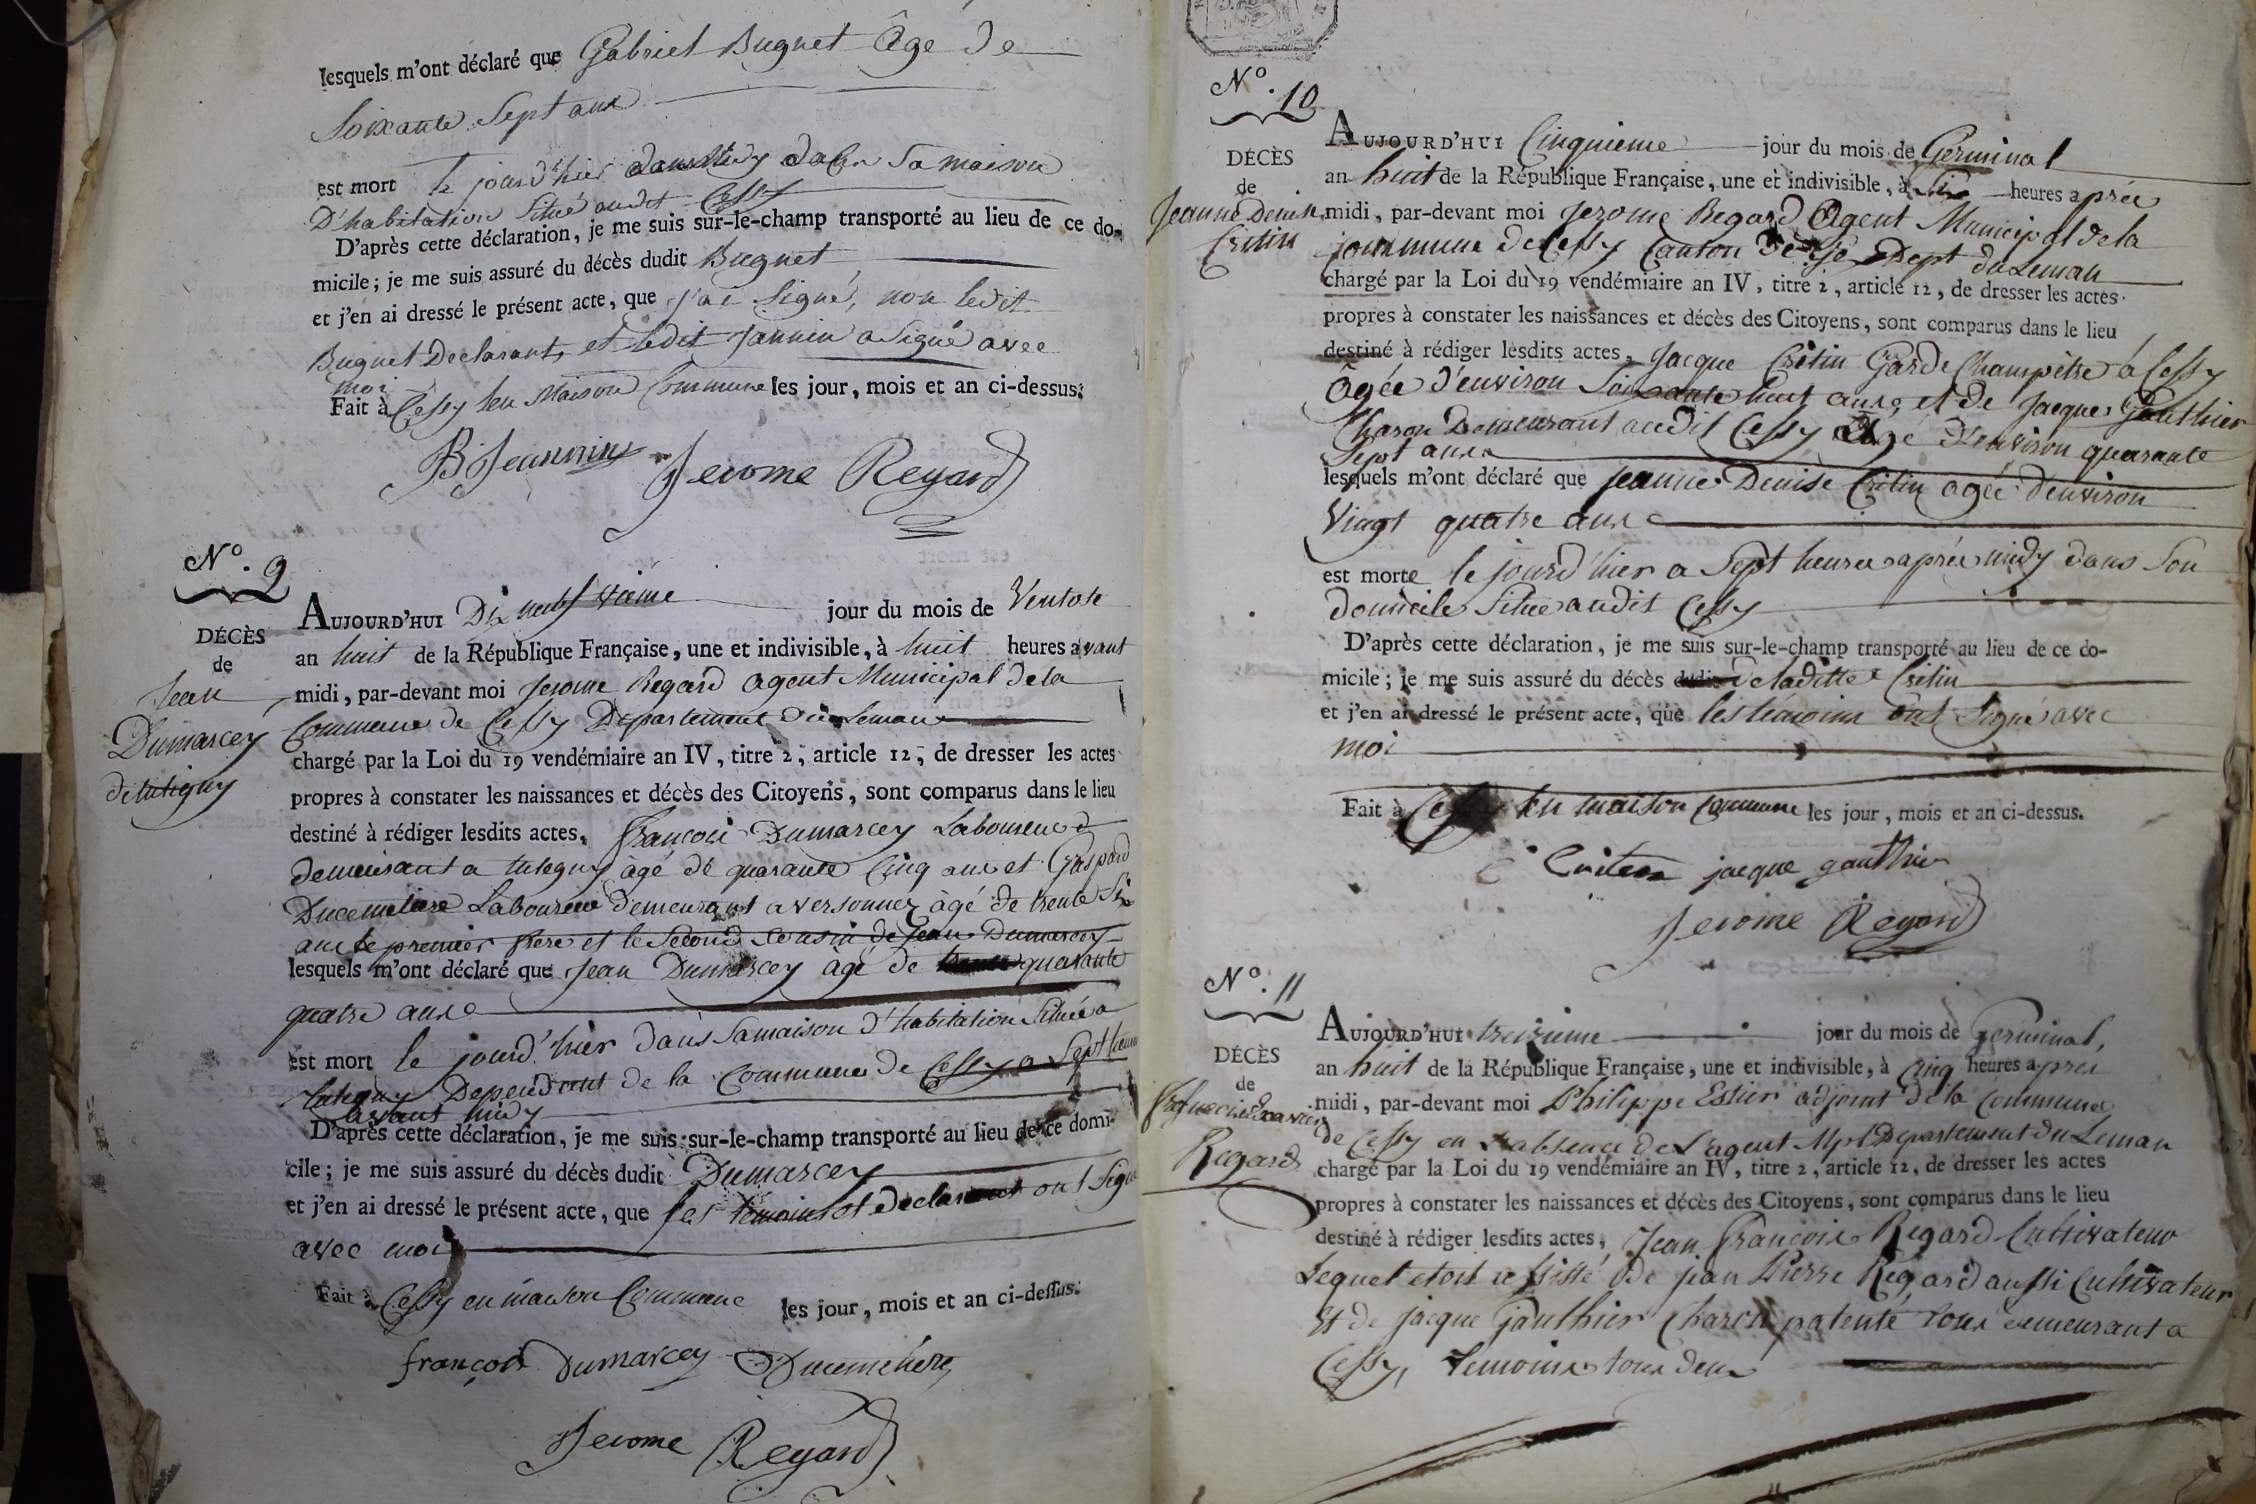 lesquels m'ont déclaré que Gabriel Buguet âgé de
Soixante Sept ans
est mort le jourd'hier dans sa maison
D'habitation Situé audit Cessy
D'après cette déclaration, je me suis sur-le-champ transporté au lieu de ce do-
micile; je me suis assuré du décès dudit Buguet
et j'en ai dressé le présent acte, que j'ai Signé, non ledit
Buguet Declarant, et ledit Jannin a Signé avec
moi
Fait à Cessy en Maison Commune les jour, mois et an ci-dessus.
B Jeannin Jerome Regard
N°. 9
DÉCÈS
de
Jean
Dumarcey
de tutegny
AUJOURD'HUI Dix neufvieme jour du mois de Ventose
an huit de la République Française, une et indivisible, à huit heures avant
midi, par-devant moi Jerome Regard agent Municipal de la
Commune de Cessy Departement du Leman
chargé par la Loi du 19 vendémiaire an IV, titre 2, article 12, de dresser les actes
propres à constater les naissances et décès des Citoyens, sont comparus dans le lieu
destiné à rédiger lesdits actes, françois Dumarcey Laboureur
demeurant a tutegny âgé de quarante Cinq ans et Gaspard
Ducemetiere Laboureur demeurant a versonnex âgé de trente Six
ans le premier frere et le Second Cousin de Jean Dumarcey
lesquels m'ont déclaré que Jean Dumarcey âgé de quarante
quatre ans
est mort le jourd'hier dans sa maison d'habitation Située a
tutegny Dependant de la Commune de Cessy a Sept heures
avant midy
D'après cette déclaration, je me suis sur-le-champ transporté au lieu de ce domi-
cile; je me suis assuré du décès dudit Dumarcey
et j'en ai dressé le présent acte, que les temoins et declarants ont Signé
avec moi
Fait à Cessy en maison Commune les jour, mois et an ci-dessus.
françois Dumarcey Ducemetiere
Jerome Regard
N°. 10
DÉCÈS
de
Jeanne Denise
Critin
AUJOURD'HUI Cinquieme jour du mois de Germinal
an huit de la République Française, une et indivisible, à Six heures après
midi, par-devant moi Jerome Regard Agent Municipal de la
Commune de Cessy Canton de Gex Dept du Leman
chargé par la Loi du 19 vendémiaire an IV, titre 2, article 12, de dresser les actes
propres à constater les naissances et décès des Citoyens, sont comparus dans le lieu
destiné à rédiger lesdits actes, Jacque Critin Garde Champètre à Cessy
âgée d'environ Soixante huit ans, et de Jacque Gauthier
Charon Demeurant audit Cessy Agé d'environ quarante
Sept ans
lesquels m'ont déclaré que jeanne Denise Critin agée d'environ
Vingt quatre ans
est morte le jourd'hier a Sept heures après midy dans Son
domicile Situé audit Cessy
D'après cette déclaration, je me suis sur-le-champ transporté au lieu de ce do-
micile; je me suis assuré du décès de laditte Critin
et j'en ai dressé le présent acte, que les temoins ont Signé avec
moi
Fait à Cessy en maison Commune les jour, mois et an ci-dessus.
Critin jacque gauthier
Jerome Regard
N°. 11
DÉCÈS
de
françois Exavier
Regard
AUJOURD'HUI treizieme jour du mois de Germinal,
an huit de la République Française, une et indivisible, à Cinq heures après
midi, par-devant moi Philippe Estier adjoint de la Commune
de Cessy en absence de L'agent Mpl Departement du Leman
chargé par la Loi du 19 vendémiaire an IV, titre 2, article 12, de dresser les actes
propres à constater les naissances et décès des Citoyens, sont comparus dans le lieu
destiné à rédiger lesdits actes, Jean François Regard Cultivateur
Lequel etoit assisté de jean Pierre Regard aussi Cultivateur
et de jacque Gauthier Charon patenté tous demeurant a
Cessy, temoins tous deux